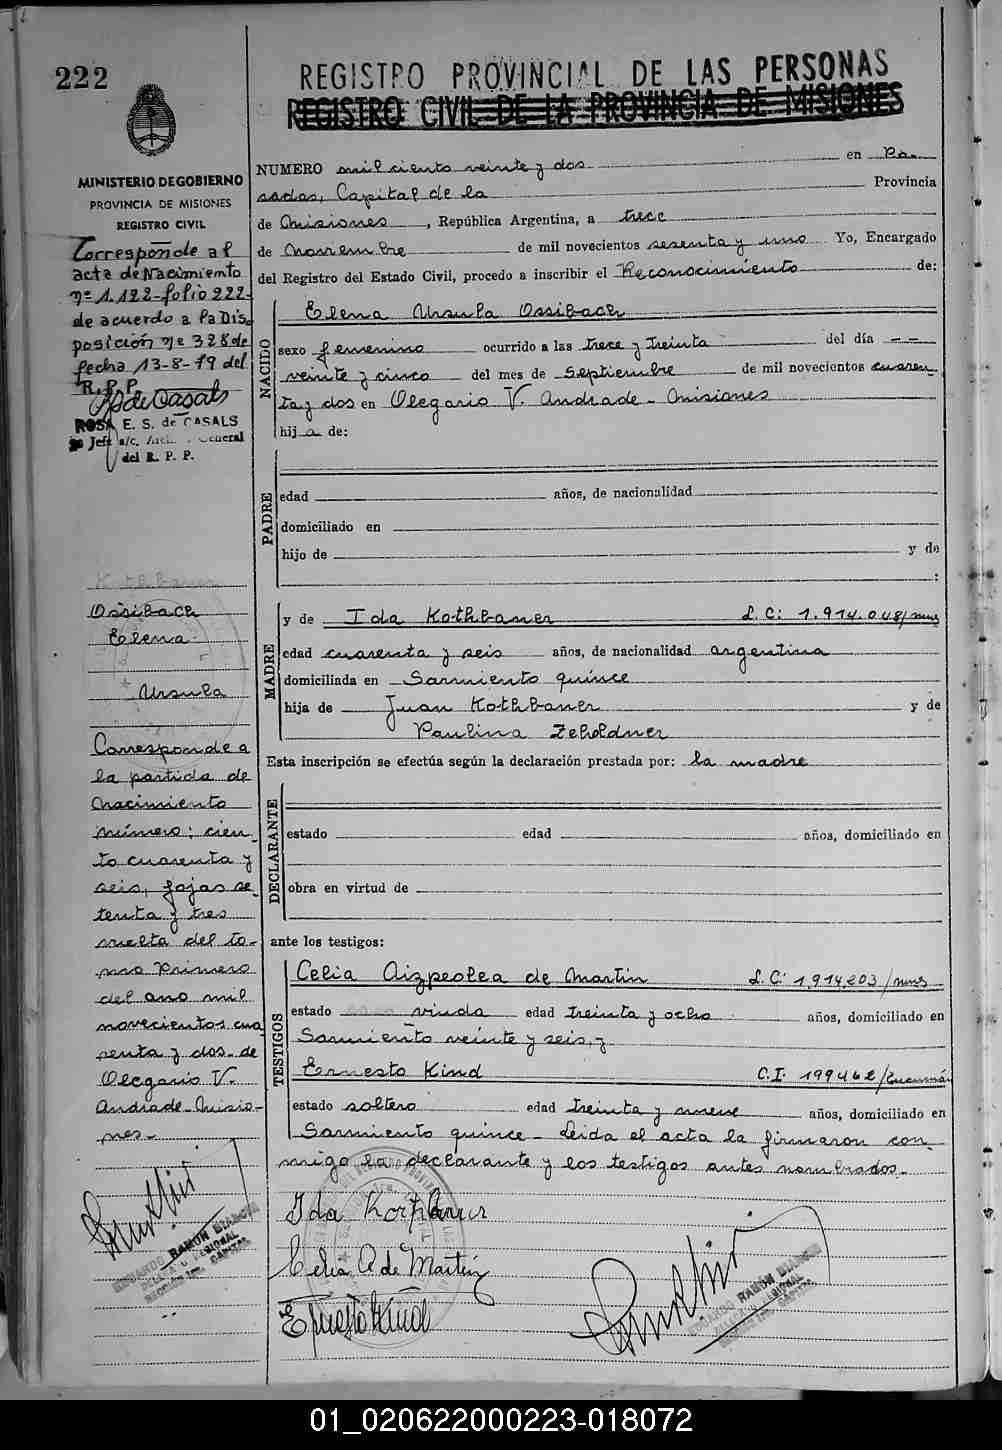 222
REGISTRO PROVINCIAL DE LAS PERSONAS
REGISTRO CIVIL DE LA PROVINCIA DE MISIONES
MINISTERIO DE GOBIERNO
PROVINCIA DE MISIONES
REGISTRO CIVIL
Corresponde al
acta de Nacimiento
nº 1.122-folio 222-
de acuerdo a la Dis
posición nº 328 de
fecha 13-8-79 del
R.P.P.
ROSA E. S. de CASALS
Jefe a/c. General
del R. P. P.
NUMERO mil ciento veinte y dos en Po-
sadas, Capital de la Provincia
de Misiones, República Argentina, a trece
de Noviembre de mil novecientos sesenta y uno Yo, Encargado
del Registro del Estado Civil, procedo a inscribir el Reconocimiento de:
NACIDO
Elena Ursula Ossibach
sexo femenino ocurrido a las trece y treinta del día --
veinte y cinco del mes de Septiembre de mil novecientos cuaren
ta y dos en Olegario V. Andrade - Misiones
hija de:
PADRE
edad años, de nacionalidad
domiciliado en
hijo de y de
:
MADRE
y de Ida Kothbauer L.C: 1.914.048/mnes
edad cuarenta y seis años, de nacionalidad argentina
domiciliada en Sarmiento quince
hija de Juan Kothbauer y de
Paulina Zeholdner
Esta inscripción se efectúa según la declaración prestada por: la madre
DECLARANTE
estado edad años, domiciliado en
obra en virtud de
ante los testigos:
TESTIGOS
Celia Aizpeolea de Martin L.C: 1.914.203/mnes
estado viuda edad treinta y ocho años, domiciliado en
Sarmiento veinte y seis, y
Ernesto Kind C.I. 199462/Tucumán
estado soltero edad treinta y nueve años, domiciliado en
Sarmiento quince - Leida el acta la firmaron con
migo la declarante y los testigos antes nombrados.-
Ida Kothbauer
Celia A de Martin
Ernesto Kind
EDUARDO RAMON BIANCHI
Kothbauer
Ossibach
Elena
Ursula
Corresponde a
la partida de
Nacimiento
número: cien
to cuarenta y
seis, fojas se
tenta y tres
vuelta del to-
mo Primero
del ano mil
novecientos cua
renta y dos - de
Olegario V.
Andrade - Misio-
nes.-
EDUARDO RAMON BIANCHI
01_020622000223-018072